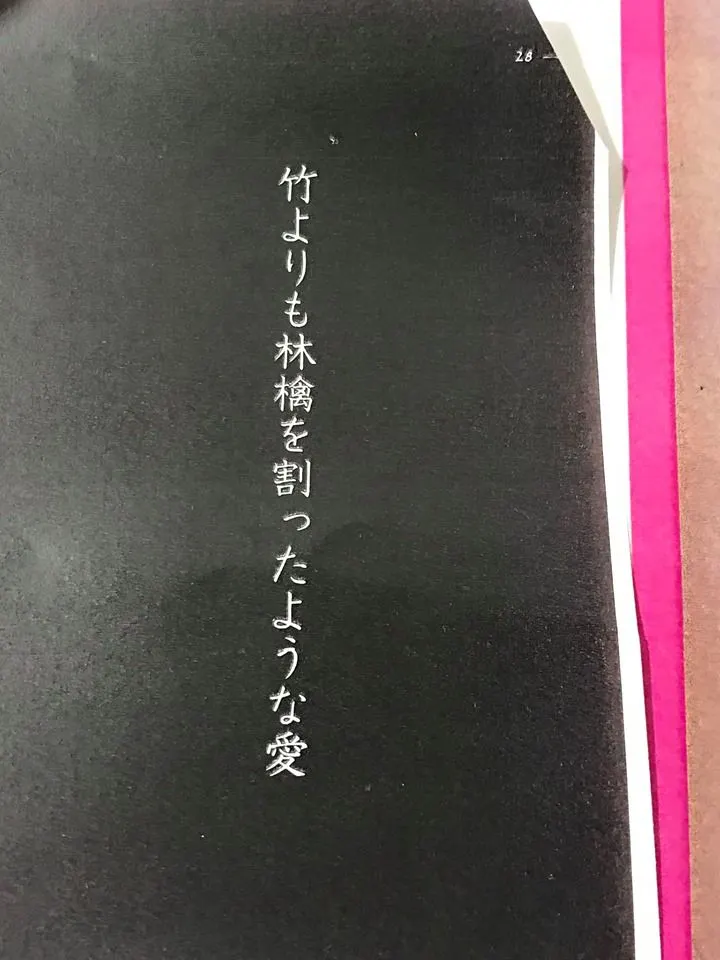 28
竹よりも林檎を割ったような愛